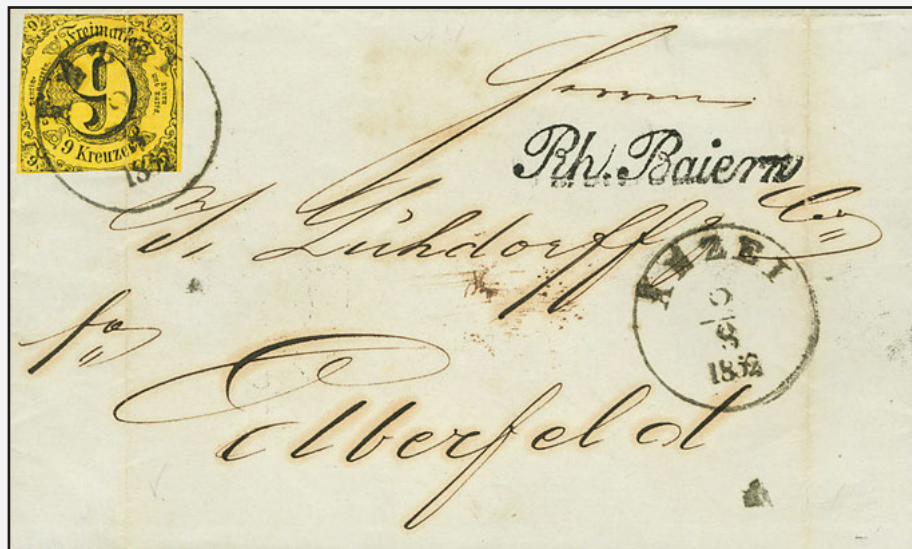 Freimarke
9
9 Kreuzer
1852
Herrn
Rh. Baiern
J. Lühdorff & Co
ALZEI
5
8
1852
fco
Elberfeld